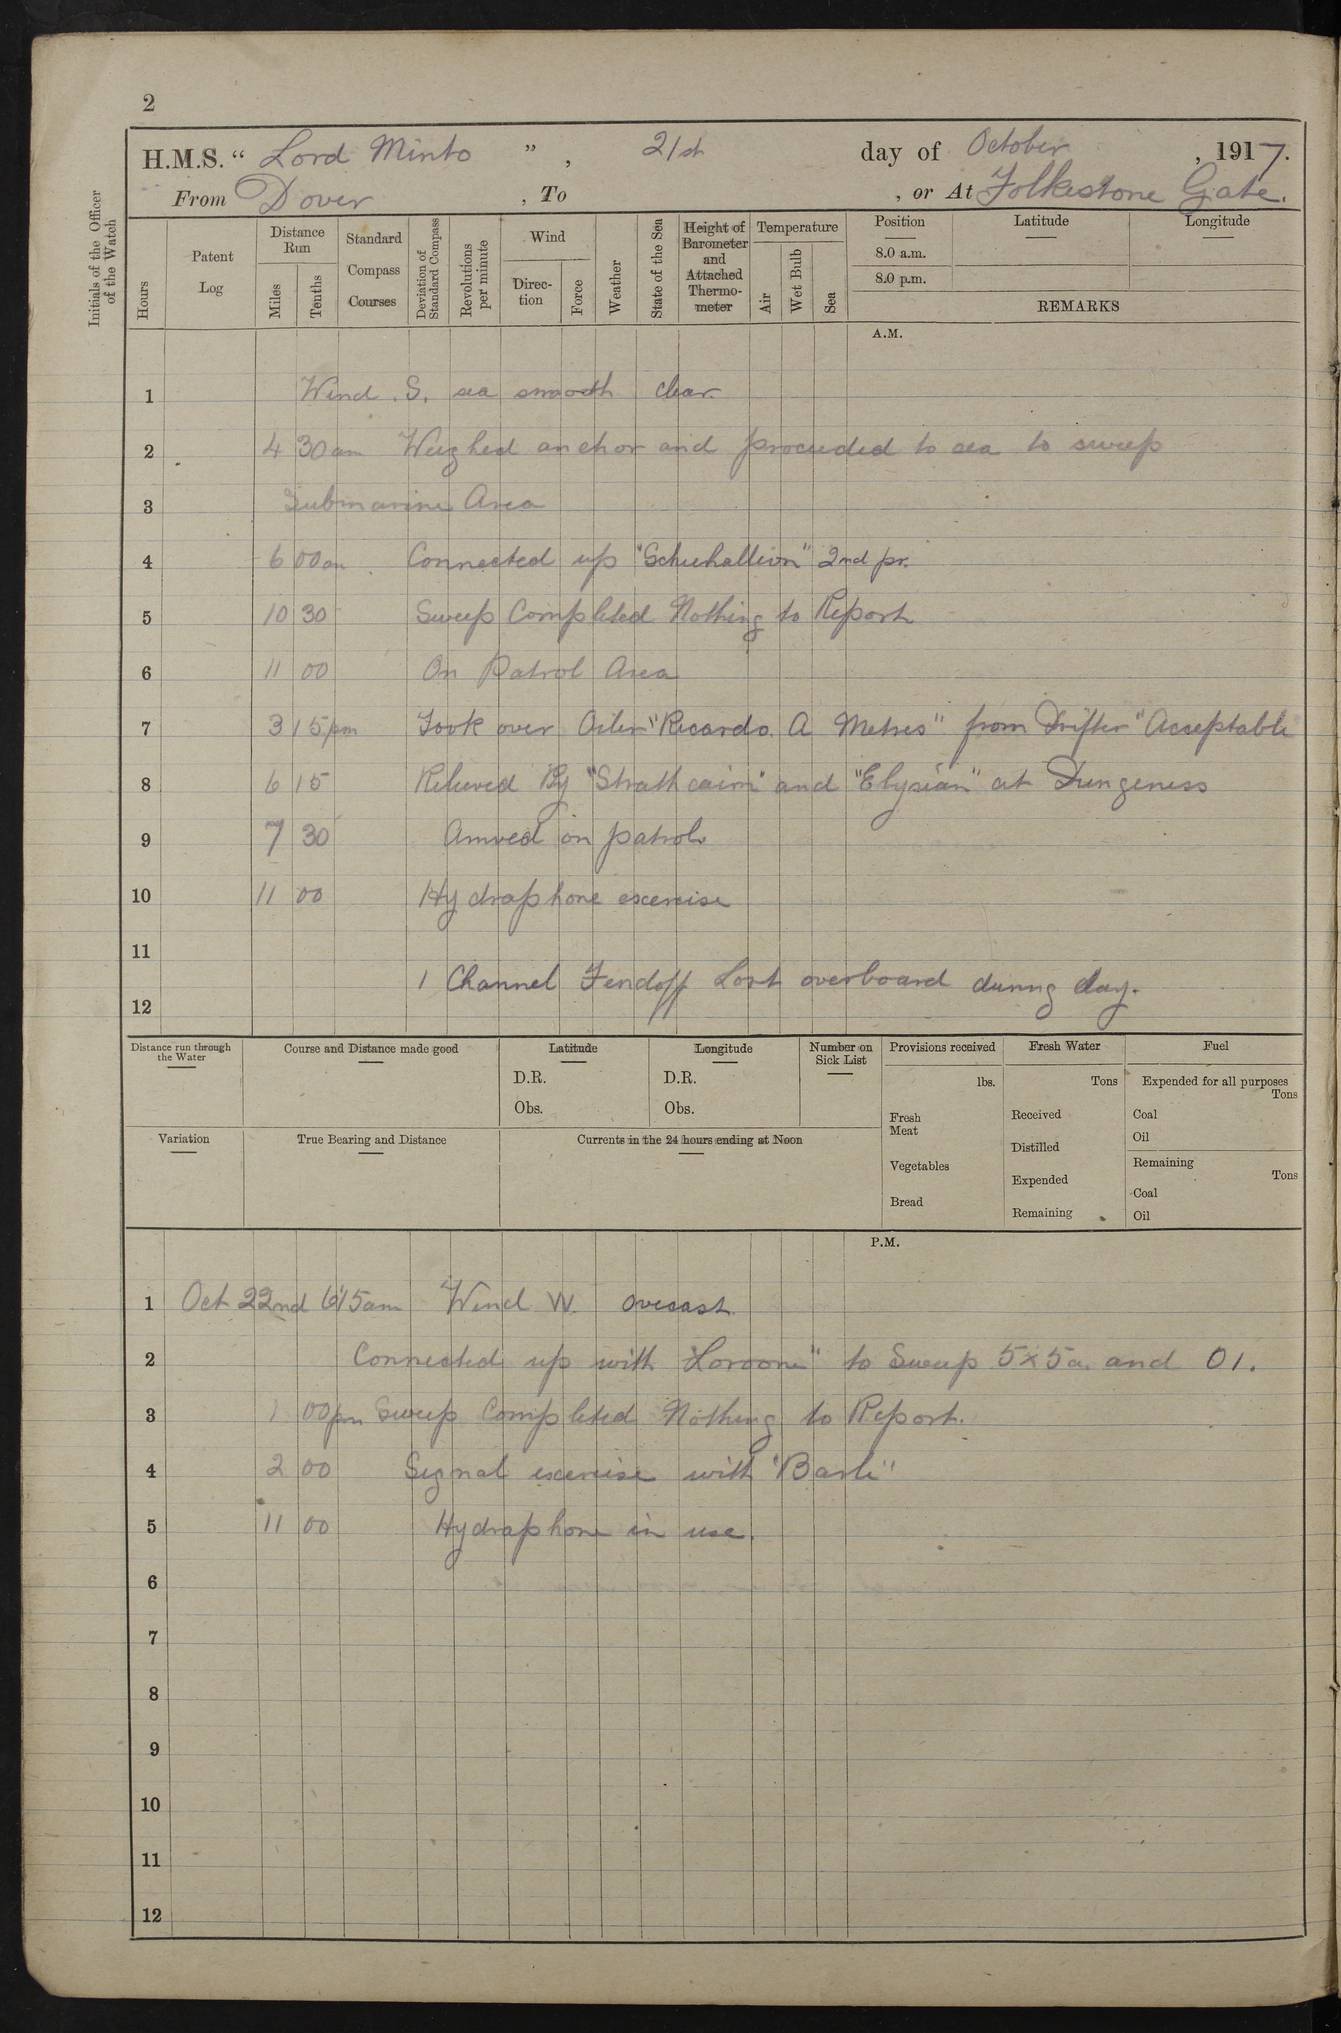 2
H.M.S. “ Lord Minto ” , 21st day of October , 1917.
From Dover , To , or At Folkestone Gate.
Initials of the Officer of the Watch
Hours
Patent Log
Distance Run
Miles
Tenths
Standard Compass Courses
Deviation of Standard Compass
Revolutions per minute
Wind
Direc-tion
Force
Weather
State of the Sea
Height of Barometer and Attached Thermo-meter
Temperature
Air
Wet Bulb
Sea
Position Latitude Longitude
8.0 a.m.
8.0 p.m.
REMARKS
A.M.
1 Wind . S. sea smooth clear.
2 4 30am Weighed anchor and proceeded to sea to sweep
3 Submarine Area
4 6 00am Connected up "Schiehallion" 2nd pr.
5 10 30 Sweep Completed Nothing to Report
6 11 00 On Patrol Area
7 3 15pm Took over Oiler "Ricardo. A Metres" from Drifter "Acceptable
8 6 15 Relieved By "Strathcairn" and "Elysian" at Dungeness
9 7 30 Arrived on patrol
10 11 00 Hydraphone excercise
11
1 Channel Fendoff Lost overboard during day.
12
Distance run through the Water
Course and Distance made good
Latitude
D.R.
Obs.
Longitude
D.R.
Obs.
Number on Sick List
Provisions received
lbs.
Fresh Meat
Vegetables
Bread
Fresh Water
Tons
Received
Distilled
Expended
Remaining
Fuel
Expended for all purposes
Tons
Coal
Oil
Remaining
Tons
Coal
Oil
Variation
True Bearing and Distance
Currents in the 24 hours ending at Noon
P.M.
1 Oct 22nd 6 15am Wind W. overcast
2 Connected up with to Sweep 5x5a. and 01.
3 1 00pm Sweep Completed Nothing to Report.
4 2 00 Signal excercise with
5 11 00 Hydraphone in use.
6
7
8
9
10
11
12